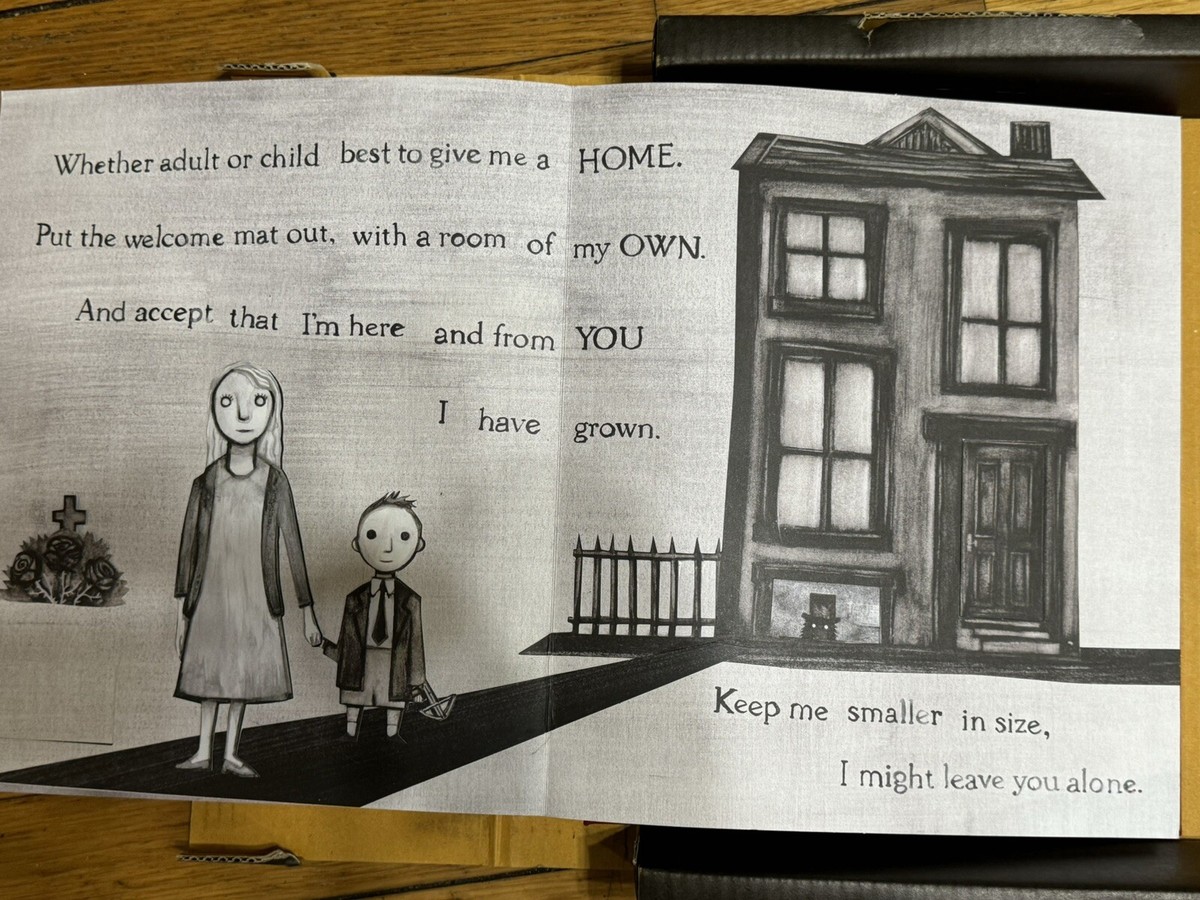 Whether adult or child best to give me a HOME.
Put the welcome mat out, with a room of my OWN.
And accept that I'm here and from YOU
I have grown.
Keep me smaller in size,
I might leave you alone.